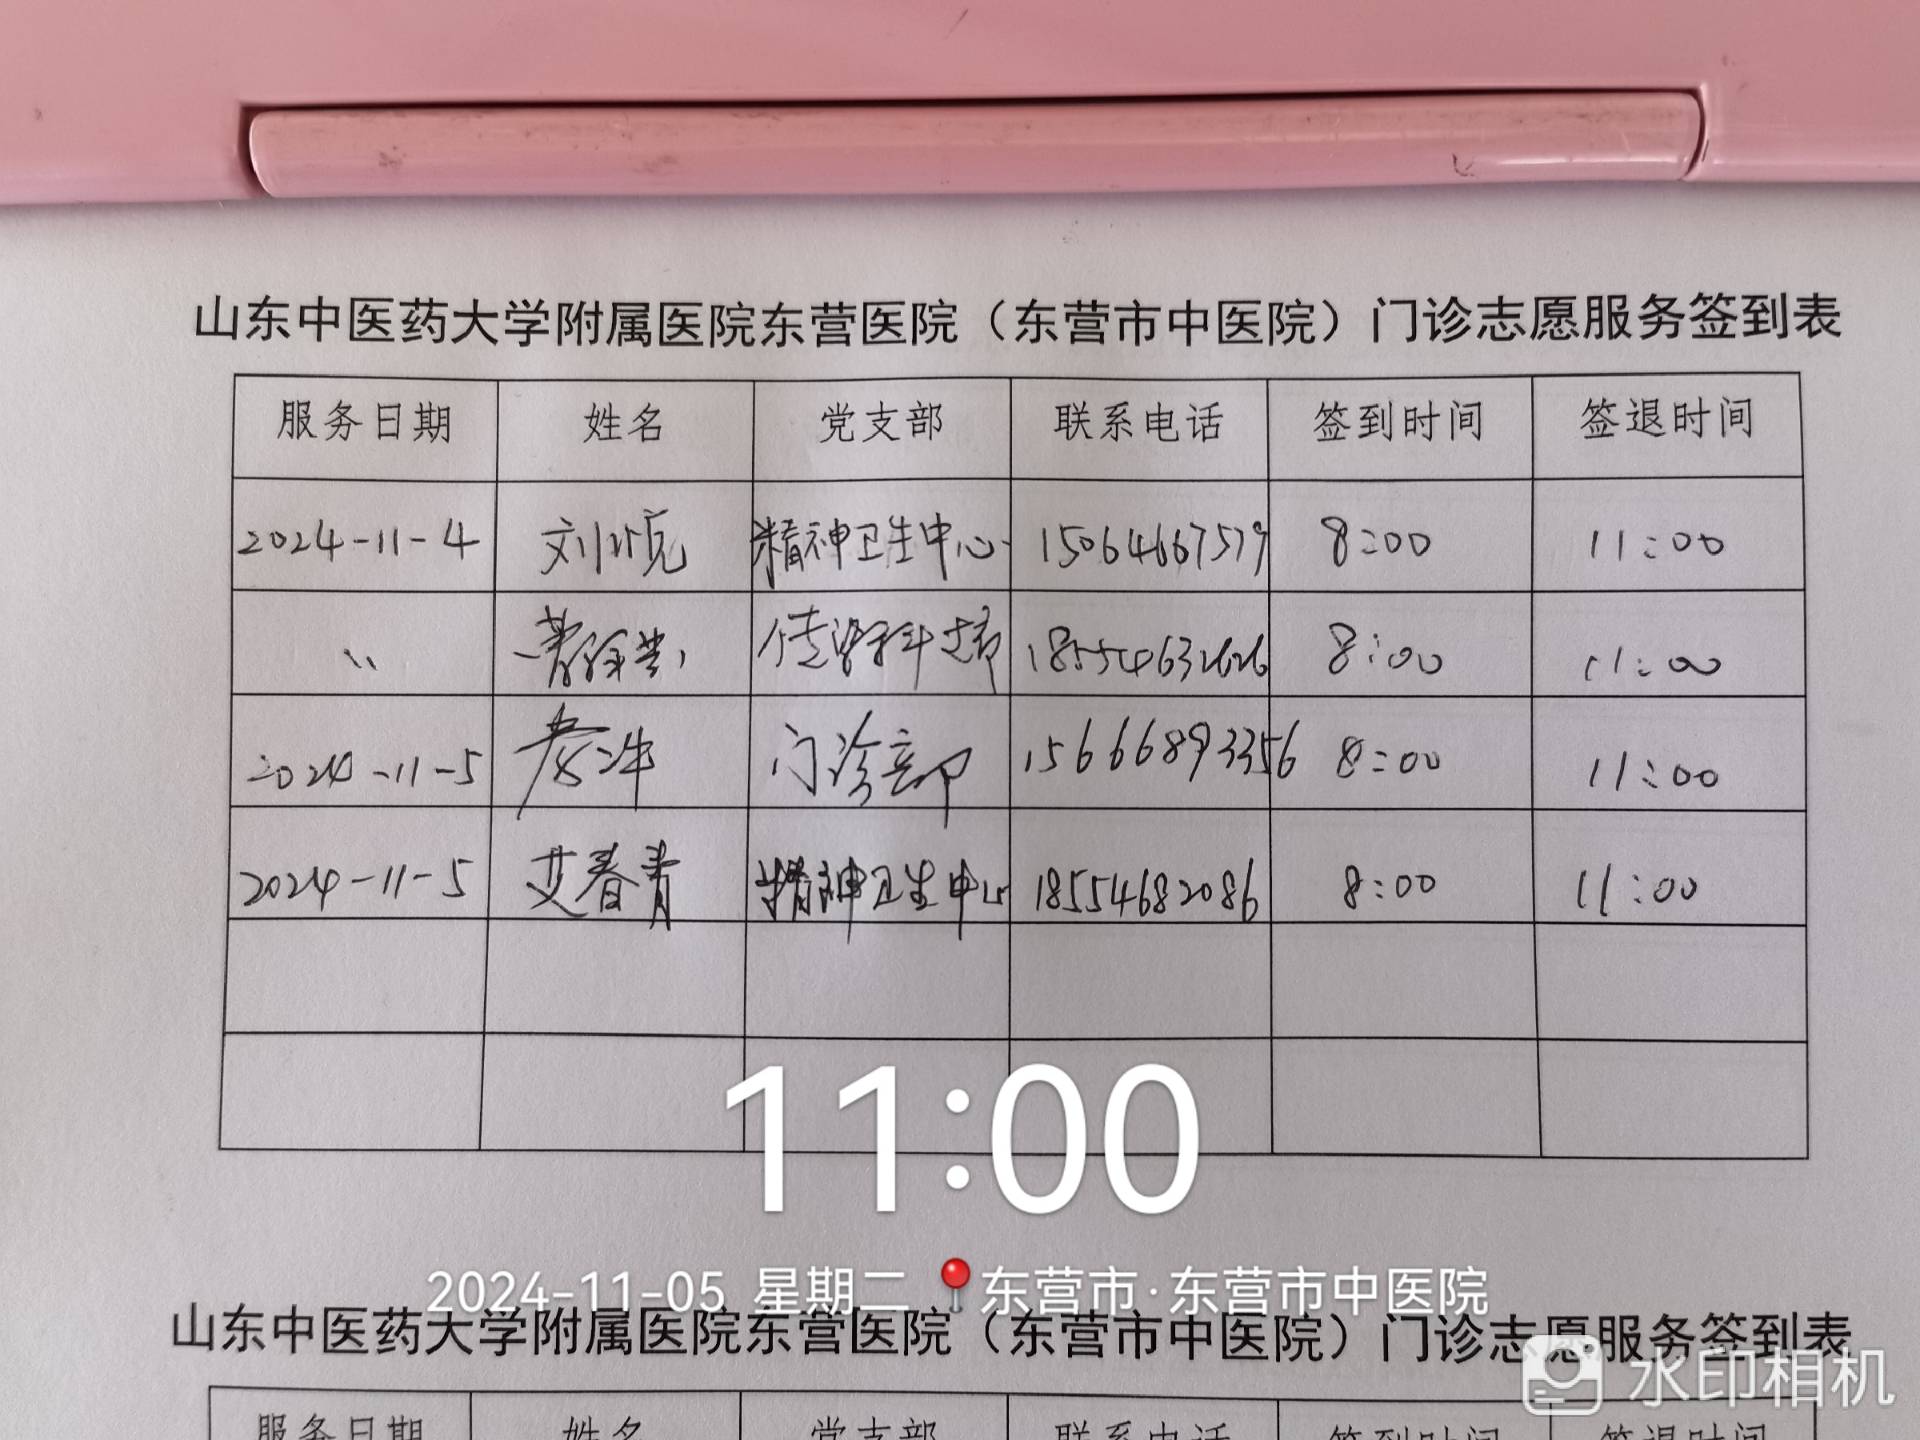 山东中医药大学附属医院东营医院（东营市中医院）门诊志愿服务签到表
服务日期 姓名 党支部 联系电话 签到时间 签退时间
2024-11-4 刘 精神卫生中心 15064667579 8:00 11:00
〃 传染科支部 18554632626 8:00 11:00
2024-11-5 门诊部 15666893356 8:00 11:00
2024-11-5 艾春青 精神卫生中心 18554682086 8:00 11:00
11:00
2024-11-05 星期二 东营市·东营市中医院
山东中医药大学附属医院东营医院（东营市中医院）门诊志愿服务签到表
水印相机
服务日期 姓名 党支部 联系电话 签到时间 签退时间